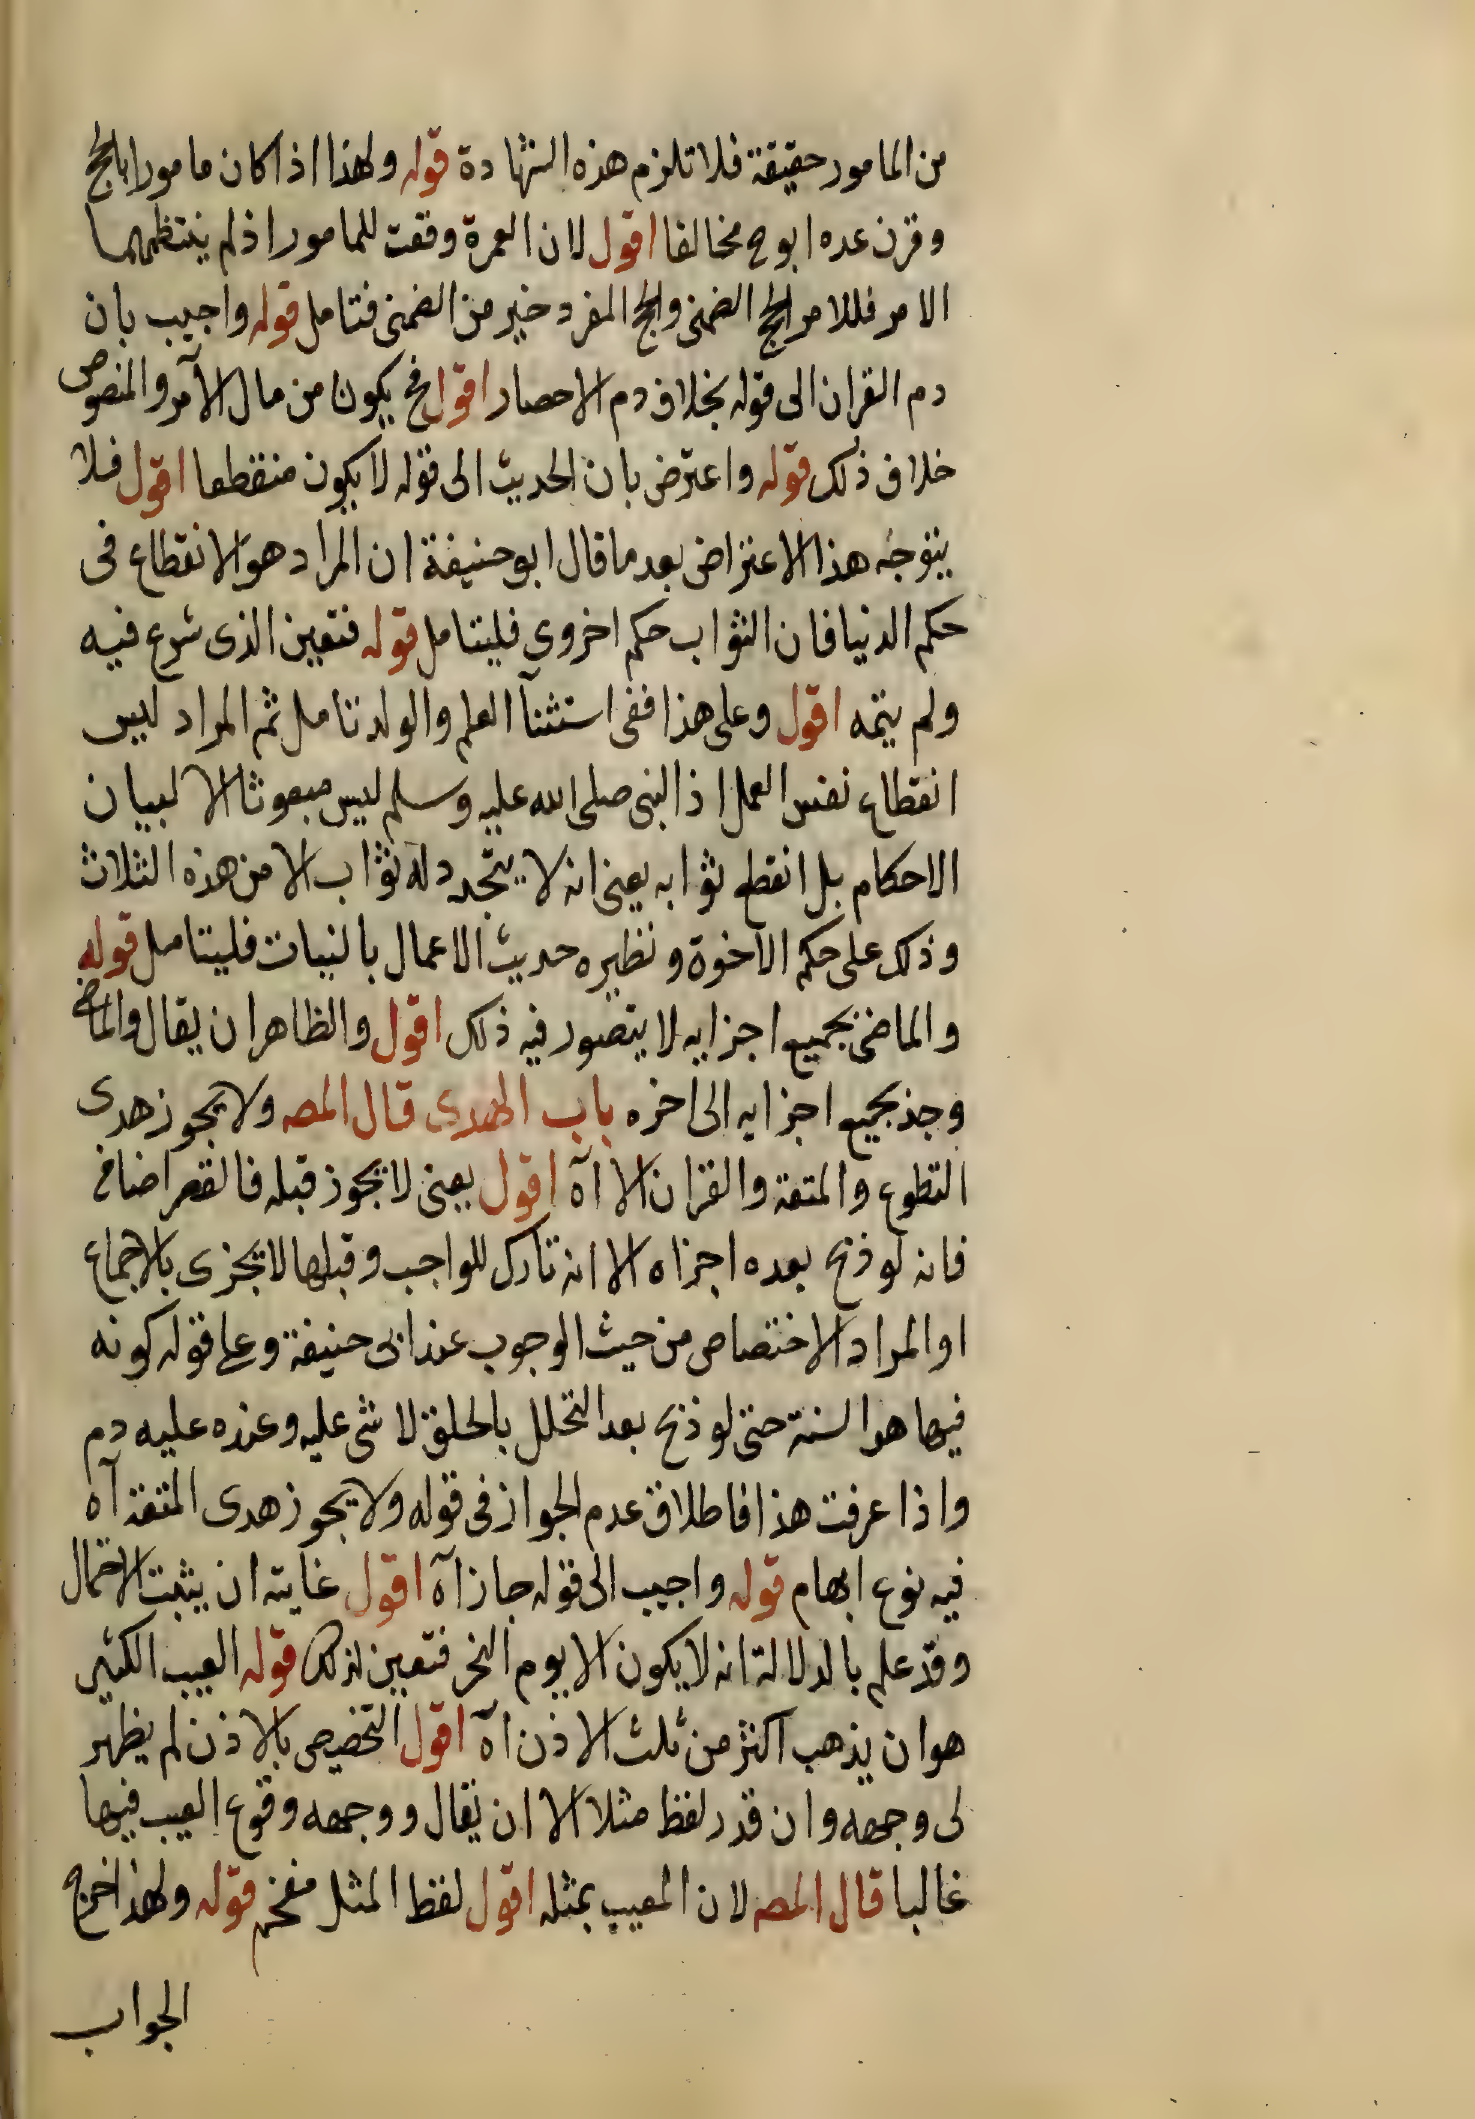 من المامور حقيقة فلا تلزم هذه الشهادة قوله ولهذا اذا كان مامورا بالحج
وقرن عده ابوح مخالفا اقول لان العمرة وقعت للمامور اذ لم ينتظمهما
الامر فللامر الحج الضمنى والحج المفرد خير من الضمنى فتامل قوله واجيب بان
دم القران الى قوله بخلاف دم الاحصار اقول فح يكون من مال الآمر والمنصوص
خلاف ذلك قوله واعترض بان الحديث الى قوله لا يكون منقطعا اقول فلا
يتوجه هذا الاعتراض بعد ما قال ابو حنيفة ان المراد هو الانقطاع فى
حكم الدنيا فان الثواب حكم اخروى فليتامل قوله فتعين الذى شرع فيه
ولم يتمه اقول وعلى هذا ففى استثنآ العلم والولد تامل ثم المراد ليس
انقطاع نفس العمل اذ النبى صلى الله عليه وسلم ليس مبعوثا الا لبيان
الاحكام بل انقطع ثوابه يعنى انه لا يتجدد له ثواب الا من هذه الثلاث
وذلك على حكم الآخرة ونظيره حديث الاعمال بالنيات فليتامل قوله
والماضى بجميع اجزايه لا يتصور فيه ذلك اقول والظاهر ان يقال والماضى
وجد بجميع اجزايه الى اخره باب الهدى قال المصـ ولا يجوز هدى
التطوع والمتعة والقران الا اه اقول يعنى لا يجوز قبله فالقصر اضافى
فانه لو ذبح بعده اجزاه الا انه تارك للواجب وقبلها لا يجزى بالاجماع
او المراد الاختصاص من حيث الوجوب عند ابى حنيفة وعلى قوله كونه
فيها هو السنة حتى لو ذبح بعد التحلل بالحلق لا شى عليه وعنده عليه دم
واذا عرفت هذا فاطلاق عدم الجواز فى قوله ولا يجوز هدى المتعة آه
فيه نوع ابهام قوله واجيب الى قوله جاز آه اقول غايته ان يثبت الاحتمال
وقد علم بالدلالة انه لا يكون الا يوم النحر فتعين لذلك قوله العيب الكثير
هو ان يذهب اكثر من ثلث الاذن آه اقول التخصيص بالاذن لم يظهر
لى وجهه وان قدر لفظ مثلا الا ان يقال ووجهه وقوع العيب فيها
غالبا قال المصـ لان المعيب بمثله اقول لفظ المثل مقحم قوله ولهذا خرج
الجواب